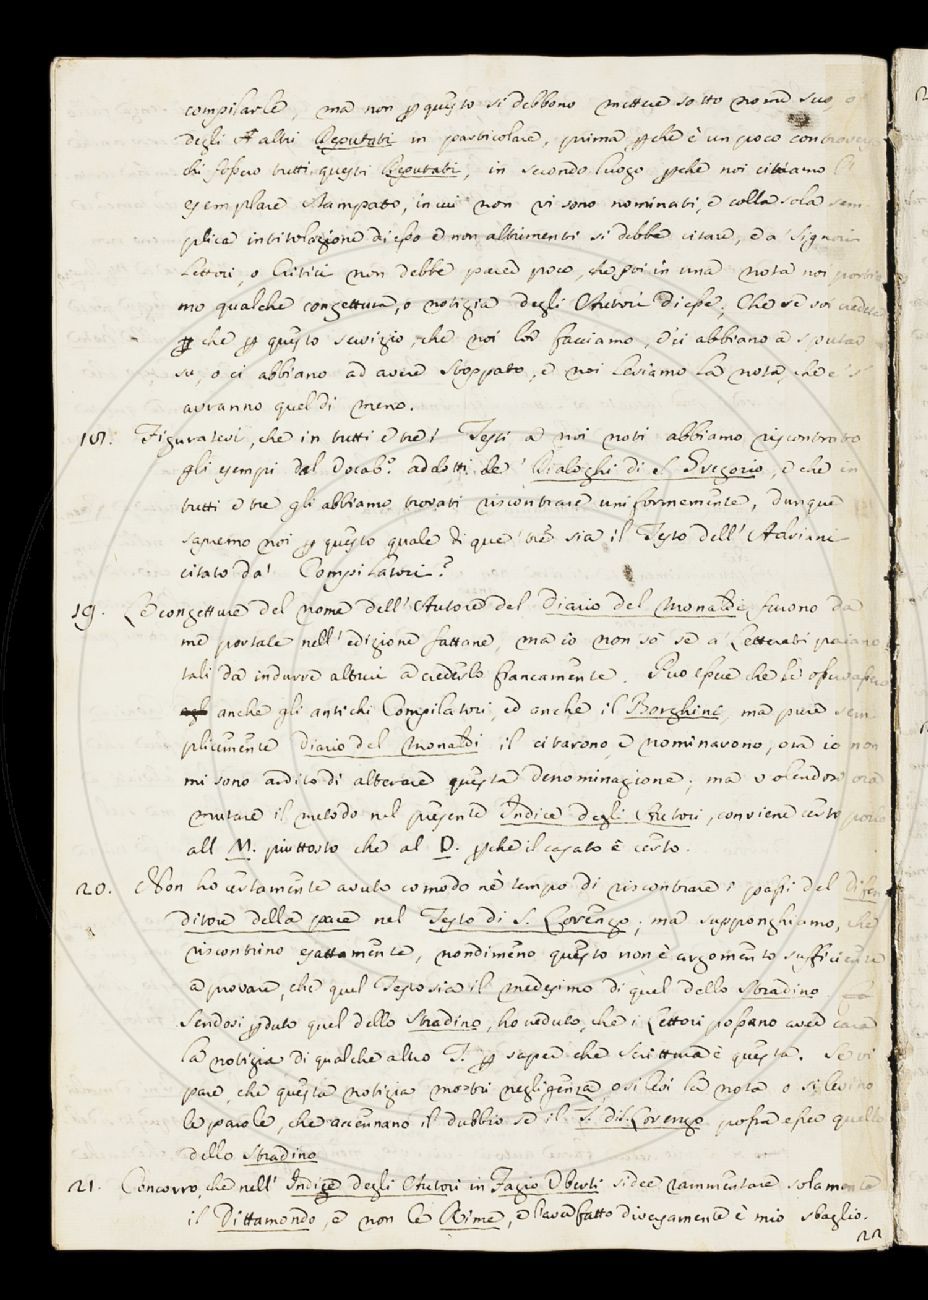 compilarle, ma non ꝑ questo si debbono mettere sotto nome suo, o
degli Altri Deputati in particolare, prima ꝑche è un poco controverso
chi fossero tutti questi Deputati, in secondo luogo ꝑche noi citiamo l
esemplare stampato, in cui non vi sono nominati, e colla sola sem-
plice intitolazione di esso e non altrimenti si debbe citare, e a' Signori
Lettori, o Critici non debbe parer poco, che poi in una nota noi
mo qualche congettura, o notizia degli Autori di esse; Che se voi credete
che ꝑ questo servizio, che noi lor facciamo, e' ci abbiano a sputar
su, o ci abbiano ad avere stoppato, e noi leviamo la nota, che e' s'
avranno quel di meno.
18. Figuratevi, che in tutti e tre i Testi a noi noti abbiamo riscontrato
gli esempi del Vocab.º addotti de' Dialoghi di S. Gregorio, e che in
tutti e tre gli abbiamo trovati riscontrare uniformemente, dunque
sapremo noi ꝑ questo quale di que' tre sia il Testo dell' Adriani
citato da' Compilatori?
19. Le congetture del nome dell' Autore del Diario del Monaldi, furono da
me portate nell' edizione fattane, ma io non sò se a' Letterati paiano
tali da indurre altrui a crederlo francamente. Può essere che le
anche gli antichi Compilatori, ed anche il Borghini, ma pure sem
plicemente Diario del Monaldi il citarono, e nominarono, ora io non
mi sono ardito di alterare questa denominazione; ma volendosi ora
mutare il metodo nel presente Indice degli Autori, conviene certo porlo
all M. piuttosto che al D. ꝑche il casato è certo.
20. Non ho certamente avuto comodo nè tempo di riscontrare i passi del Difen
ditore della pace nel Testo di S. Lorenzo, ma supponghiamo, che
riscontrino esattamente, nondimeno questo non è argomento sufficiente
a provare, che quel Testo sia il medesimo di quel dello Stradino
sendosi ꝑduto quel dello Stradino, ho veduto, che i Lettori possano aver cara
la notizia di qualche altro T. ꝑ saper che Scrittura è questa. Se vi
pare, che questa notizia mostri negligenza, o si levi la nota, o si levino
le parole, che accennano il dubbio se il T. di S. Lorenzo possa esser quello
dello Stradino
21. Concorro, che nell' Indice degli Autori in Fazio Uberti si dee rammentare solamente
il Dittamondo, e non le Rime, e l'aver fatto diversamente è mio sbaglio.
22